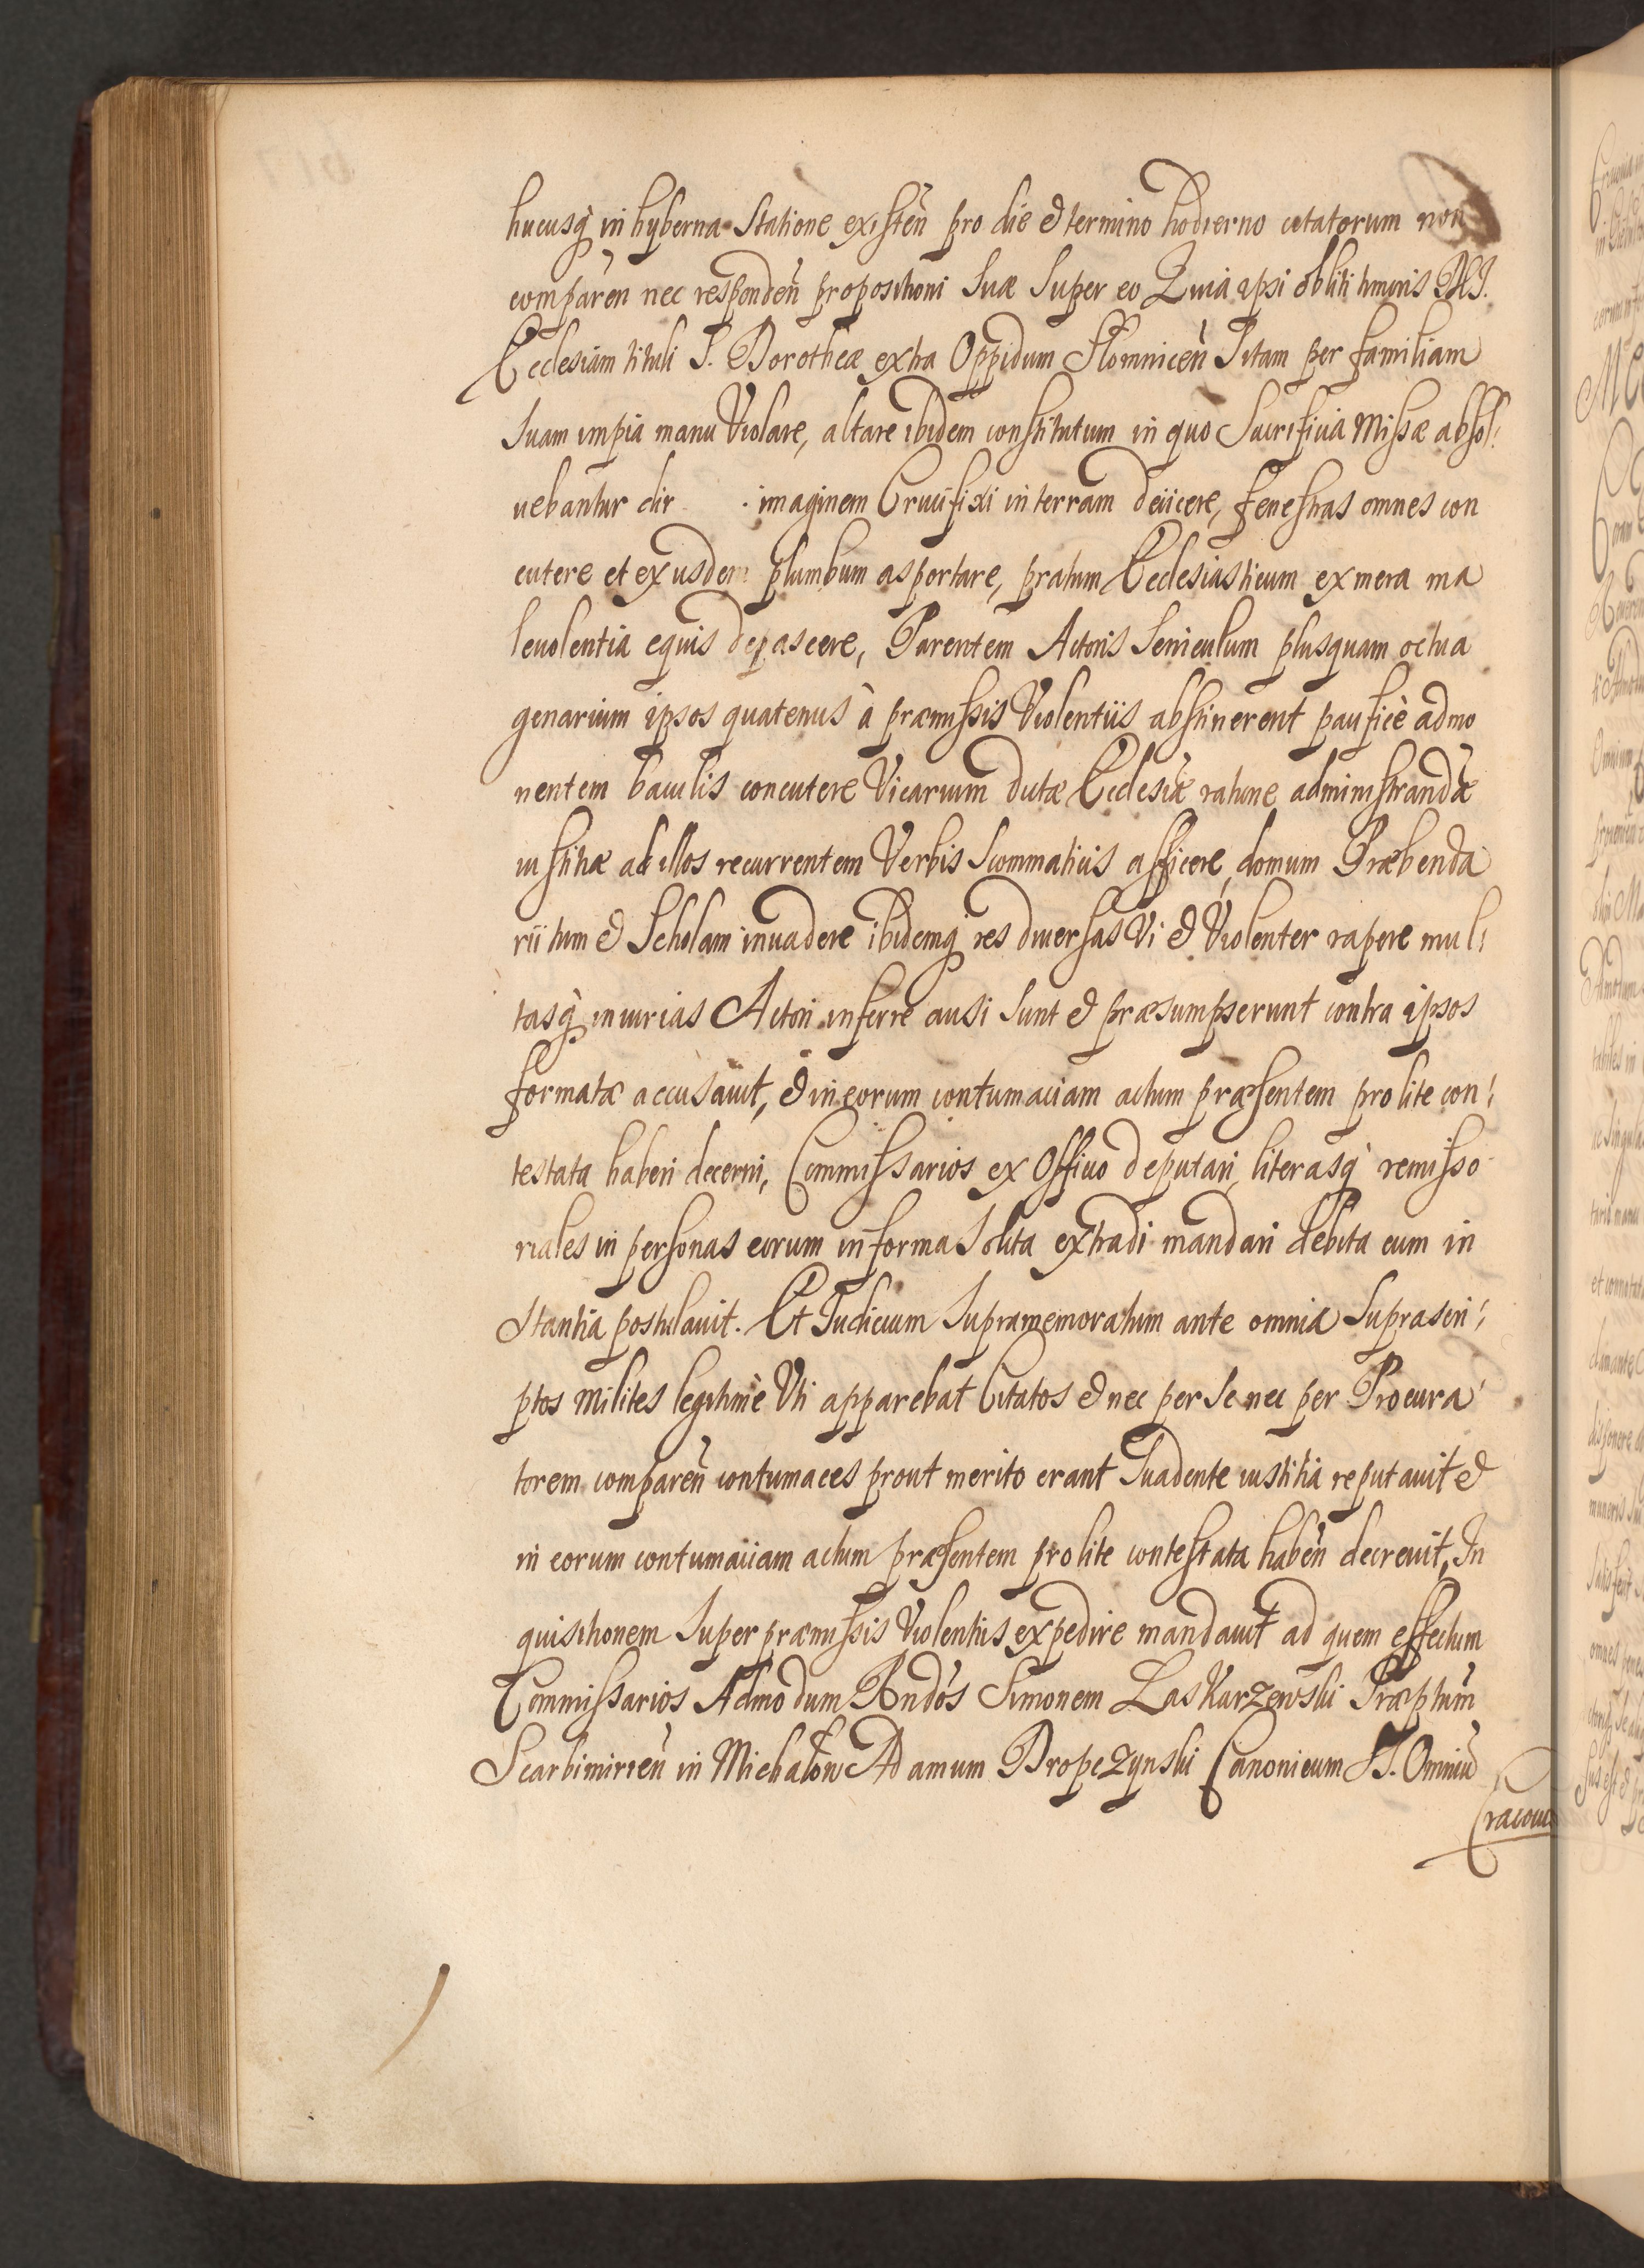 hucusq̀ in hyberna Statione existen̄ pro die et termino hodierno citatorum non
comparen̄ nec responden̄ propositioni Suæ Super eo Quia ipsi obliti timoris
Ecclesiam tituli S. Dorotheæ extra Oppidum Slomnicen̄ Sitam per familiam
Suam impia manu Violare, altare ibidem constitutum in quo Sacrificia Missæ absol:
uebantur dir imaginem Crucifixi in terram deiicere, fenestras omnes con
cutere et ex usdem plumbum asportare, pratum Ecclesiasticum ex mera ma
leuolentia equis depascere, Parentem Actoris Seniculum plusquam octua
genarium ipsos quatenus à præmissis Violentiis abstinerent pacificè admo
nentem baculis concutere Vicarium dictæ Ecclesiæ ratione administrandæ
iustitiæ ad illos recurrentem Verbis Scommaticis afficere, domum Præbenda
rii tum et Scholam inuadere ibidemq̀ res diuersas Vi et Violenter rapere mul:
tasq̀ iniurias Actori inferre ausi Sunt et præsumpserunt contra ipsos
formatæ accusauit, et in eorum contumaciam actum præsentem pro lite con:
testata haberi decerni, Commissarios ex Officio deputari, literasq̀ remisso
riales in personas eorum in forma Solita extradi mandari debita cum in
stantia postulauit. Et Iudicium Supramemoratum ante omnia Suprascri:
ptos Milites legitimè Vti apparebat Citatos et nec per Se nec per Procura
torem comparen̄ contumaces prout merito erant Suadente iustitia reputauit et
in eorum contumaciam actum præsentem pro lite contestata haben̄ decreuit, In
quisitionem Super præmissis Violentiis expedire mandauit ad quem effectum
Commissarios Admodum Rndos Simonem Laskarzewski Præptum
Scarbimirien̄ in Michałow Adamum Dropczynski Canonicum SS. Omniū
Cracoui